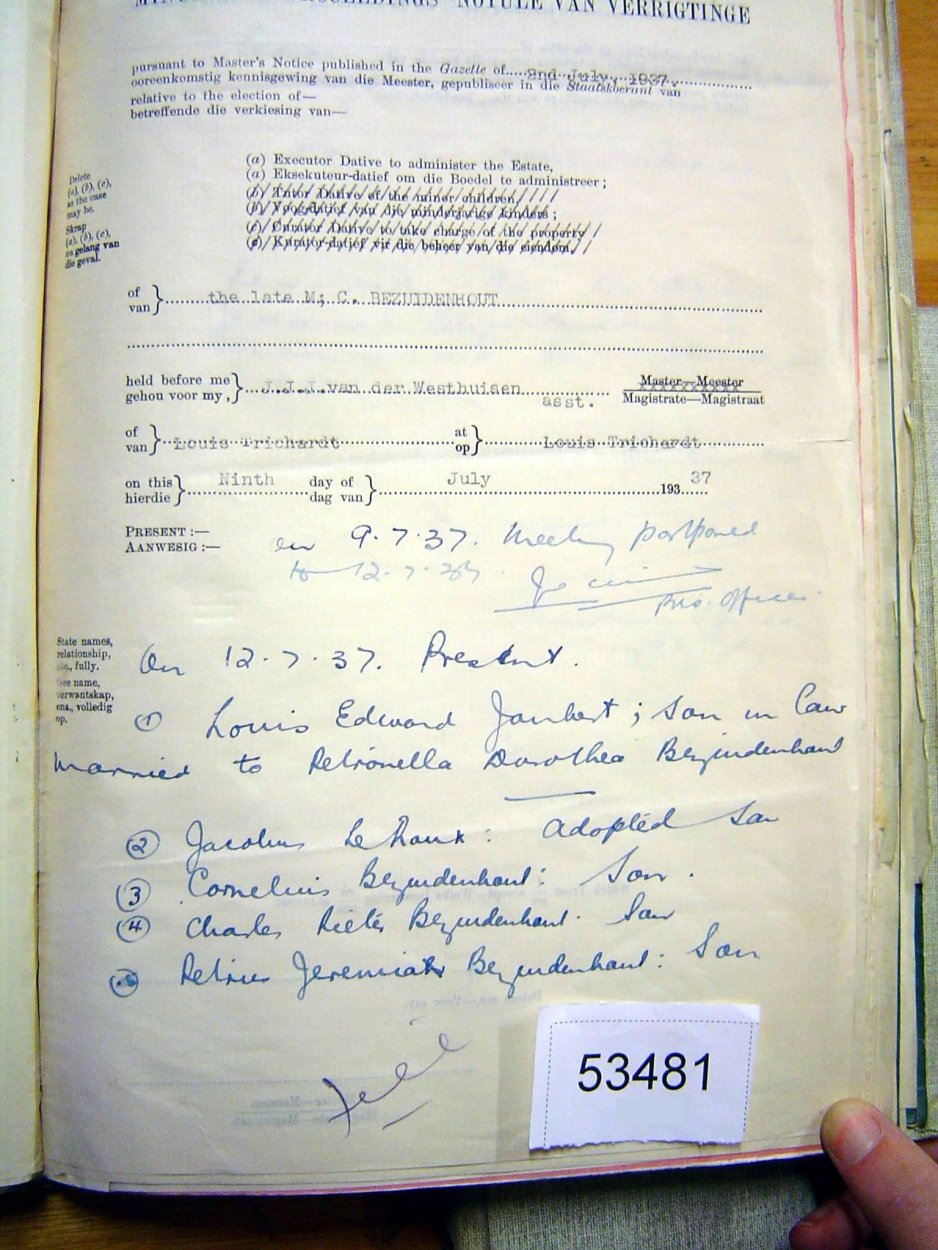 PROCEEDINGS—NOTULE VAN VERRIGTINGE
pursuant to Master's Notice published in the Gazette of....2nd July, 1937.
ooreenkomstig kennisgewing van die Meester, gepubliseer in die Staatskoerant van
relative to the election of—
betreffende die verkiesing van—
Delete
(a), (b), (c),
as the case
may be.
Skrap
(a), (b), (c),
na gelang van
die geval.
(a) Executor Dative to administer the Estate,
(a) Eksekuteur-datief om die Boedel te administreer;
(b) Tutor Dative of the minor children,
(b) Voogdatief van die minderjarige kinders;
(c) Curator Dative to take charge of the property
(c) Kurator-datief vir die beheer van die eiendom,
of
van } the late M; C. BEZUIDENHOUT
held before me
gehou voor my, } J.J.I.van der Westhuisen asst. Master—Meester
Magistrate—Magistraat
of
van } Louis Trichardt at
op } Louis Trichardt
on this
hierdie } Ninth day of
dag van } July 193 37
PRESENT :—
AANWESIG :—
on 9.7.37. Meeting postponed
to 12.7.37.
Pres. Officer
State names,
relationship,
etc., fully.
Gee name,
verwantskap,
ens., volledig
op.
On 12.7.37. Present.
① Louis Edward Joubert; Son in Law
married to Petronella Dorothea Bezuidenhout
② Jacobus Le Roux: adopted Son
③ Cornelius Bezuidenhout: Son.
④ Charles Bezuidenhout. Son
⑤ Petrus Jeremiah Bezuidenhout: Son
53481